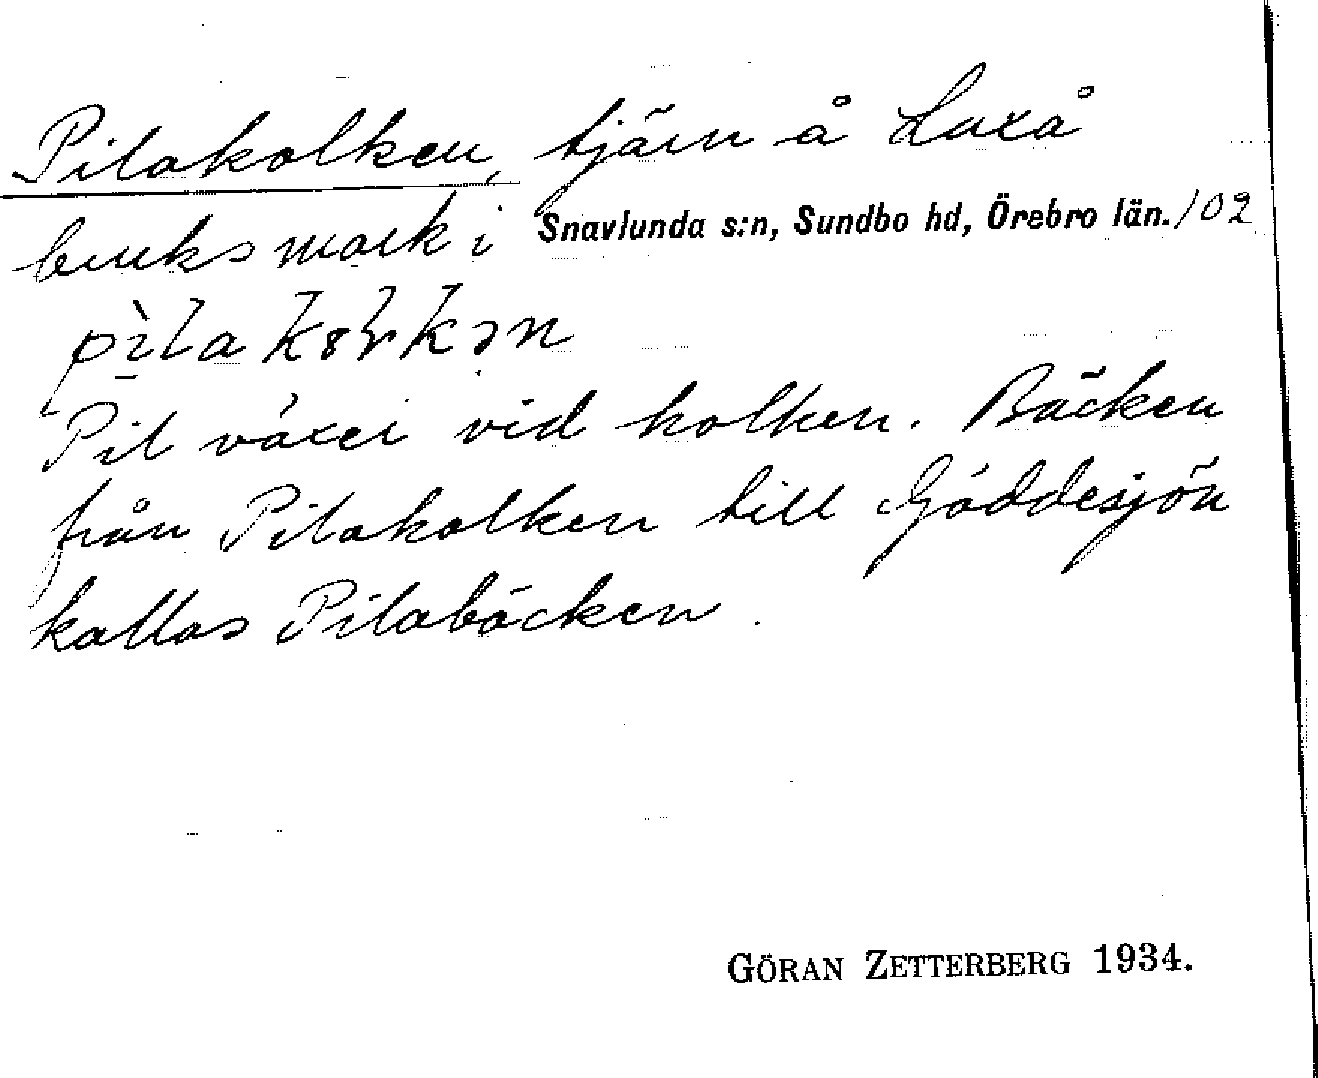 Pilakolken, tjärn å Laxå
bruks mark i Snavlunda s:n, Sundbo hd, Örebro län. 102
pìlakoɽkən
Pil växer vid kolken. Bäcken
från Pilakolken till Gäddesjön
kallas Pilabäcken.
GÖRAN ZETTERBERG 1934.